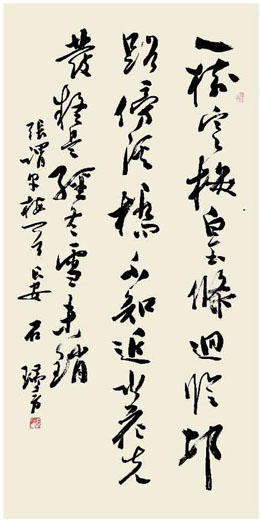 一樹寒梅白玉條迥臨邨
路傍溪橋不知近水花先
發疑是經冬雪未銷
張謂早梅一首長安石瑞芳